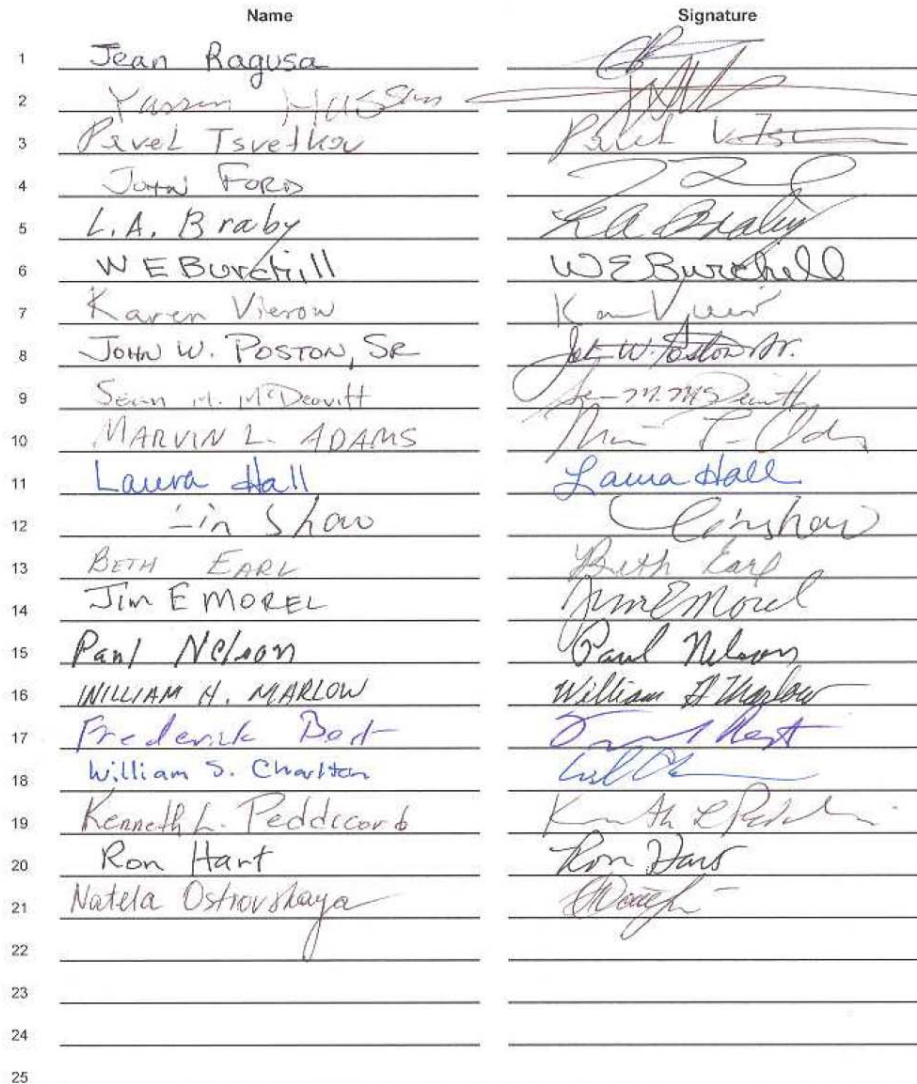 Name Signature
1 Jean Ragusa
2 Yassin Hassan
3 Pavel Tsvetkov Pavel V. Ts
4 John Ford
5 L.A. Braby L A Braby
6 W E Burchill W E Burchill
7 Karen Vierow
8 John W. Poston, Sr John W. Poston Sr.
9 Sean M. McDeavitt Sean M. McDeavitt
10 MARVIN L. ADAMS
11 Laura Hall Laura Hall
12 Lin Shao Linshao
13 BETH EARL Beth Earl
14 Jim E MOREL Jim E Morel
15 Paul Nelson Paul Nelson
16 WILLIAM H. MARLOW William H Marlow
17 Frederick Best
18 William S. Charlton
19 Kenneth L. Peddicord
20 Ron Hart Ron Hart
21 Natela Ostrovskaya
22
23
24
25